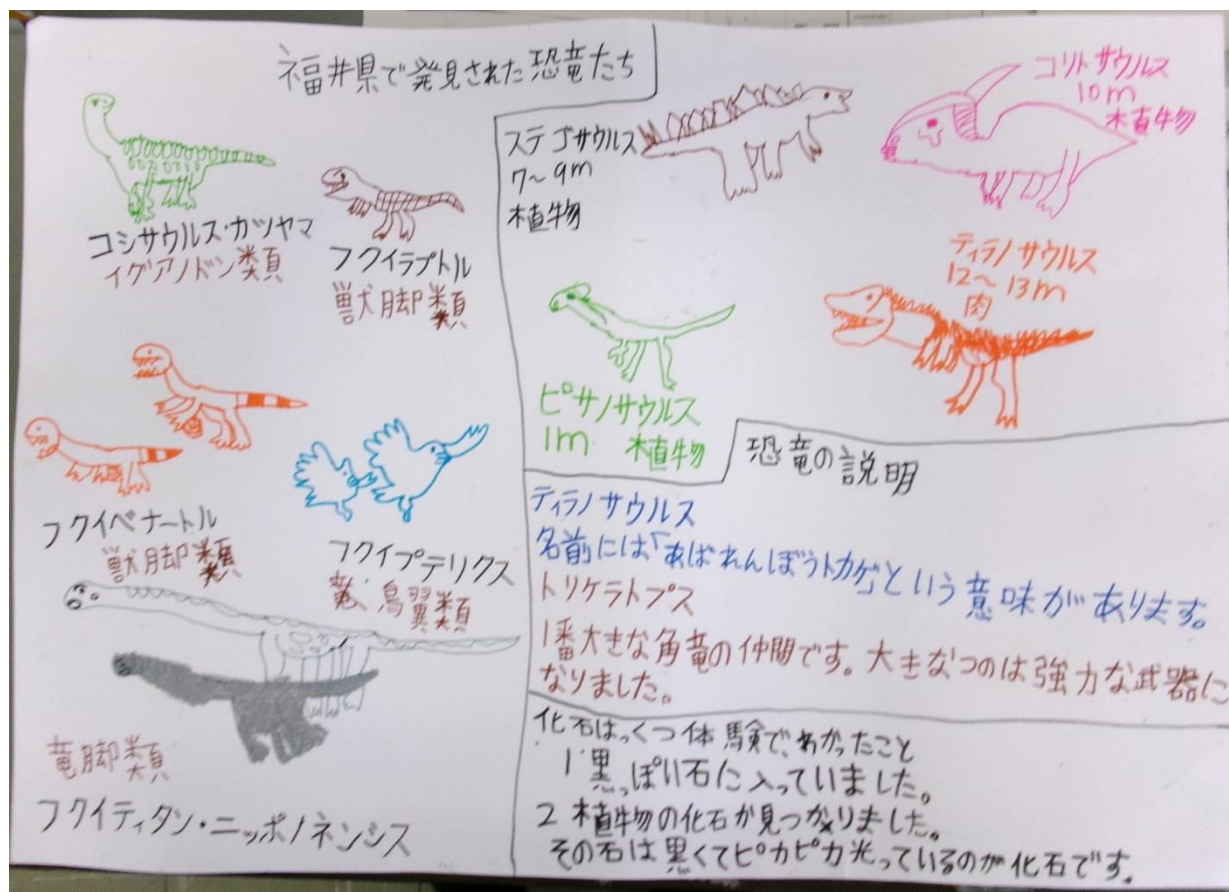 福井県で発見された恐竜たち
コシサウルス・カツヤマ
イグアノドン類
フクイラプトル
獣脚類
フクイベナートル
獣脚類
フクイプテリクス
鳥翼類
竜脚類
フクイティタン・ニッポノネンシス
ステゴサウルス
7〜9m
植物
コリトサウルス
10m
植物
ピサノサウルス
1m 植物
ティラノサウルス
12〜13m
肉
恐竜の説明
ティラノサウルス
名前には「あばれんぼうトカゲ」という意味があります。
トリケラトプス
1番大きな角竜の仲間です。大きなつのは強力な武器に
なりました。
化石はっくつ体験で、わかったこと
1 黒っぽい石に入っていました。
2 植物の化石が見つかりました。
その石は黒くてピカピカ光っているのが化石です。